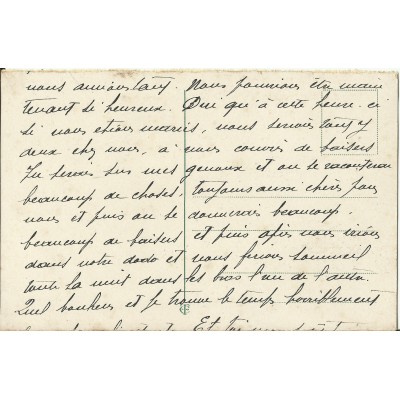 nous aimions tant. Nous pourrions être main
tenant si heureux. Oui qu'à cette heure-ci
si nous étions mariés, nous serions tous
deux chez nous, à nous couvrir de baisers
Tu serais sur mes genoux et on se raconterai
beaucoup de choses toujours aussi chères pour
nous et puis on se donnerais beaucoup
beaucoup de baisers et puis après nous irions
dans notre dodo et nous prions sommeil
toute la nuit dans les bras l'un de l'autre.
Quel bonheur et je trouve le temps horriblement
Et